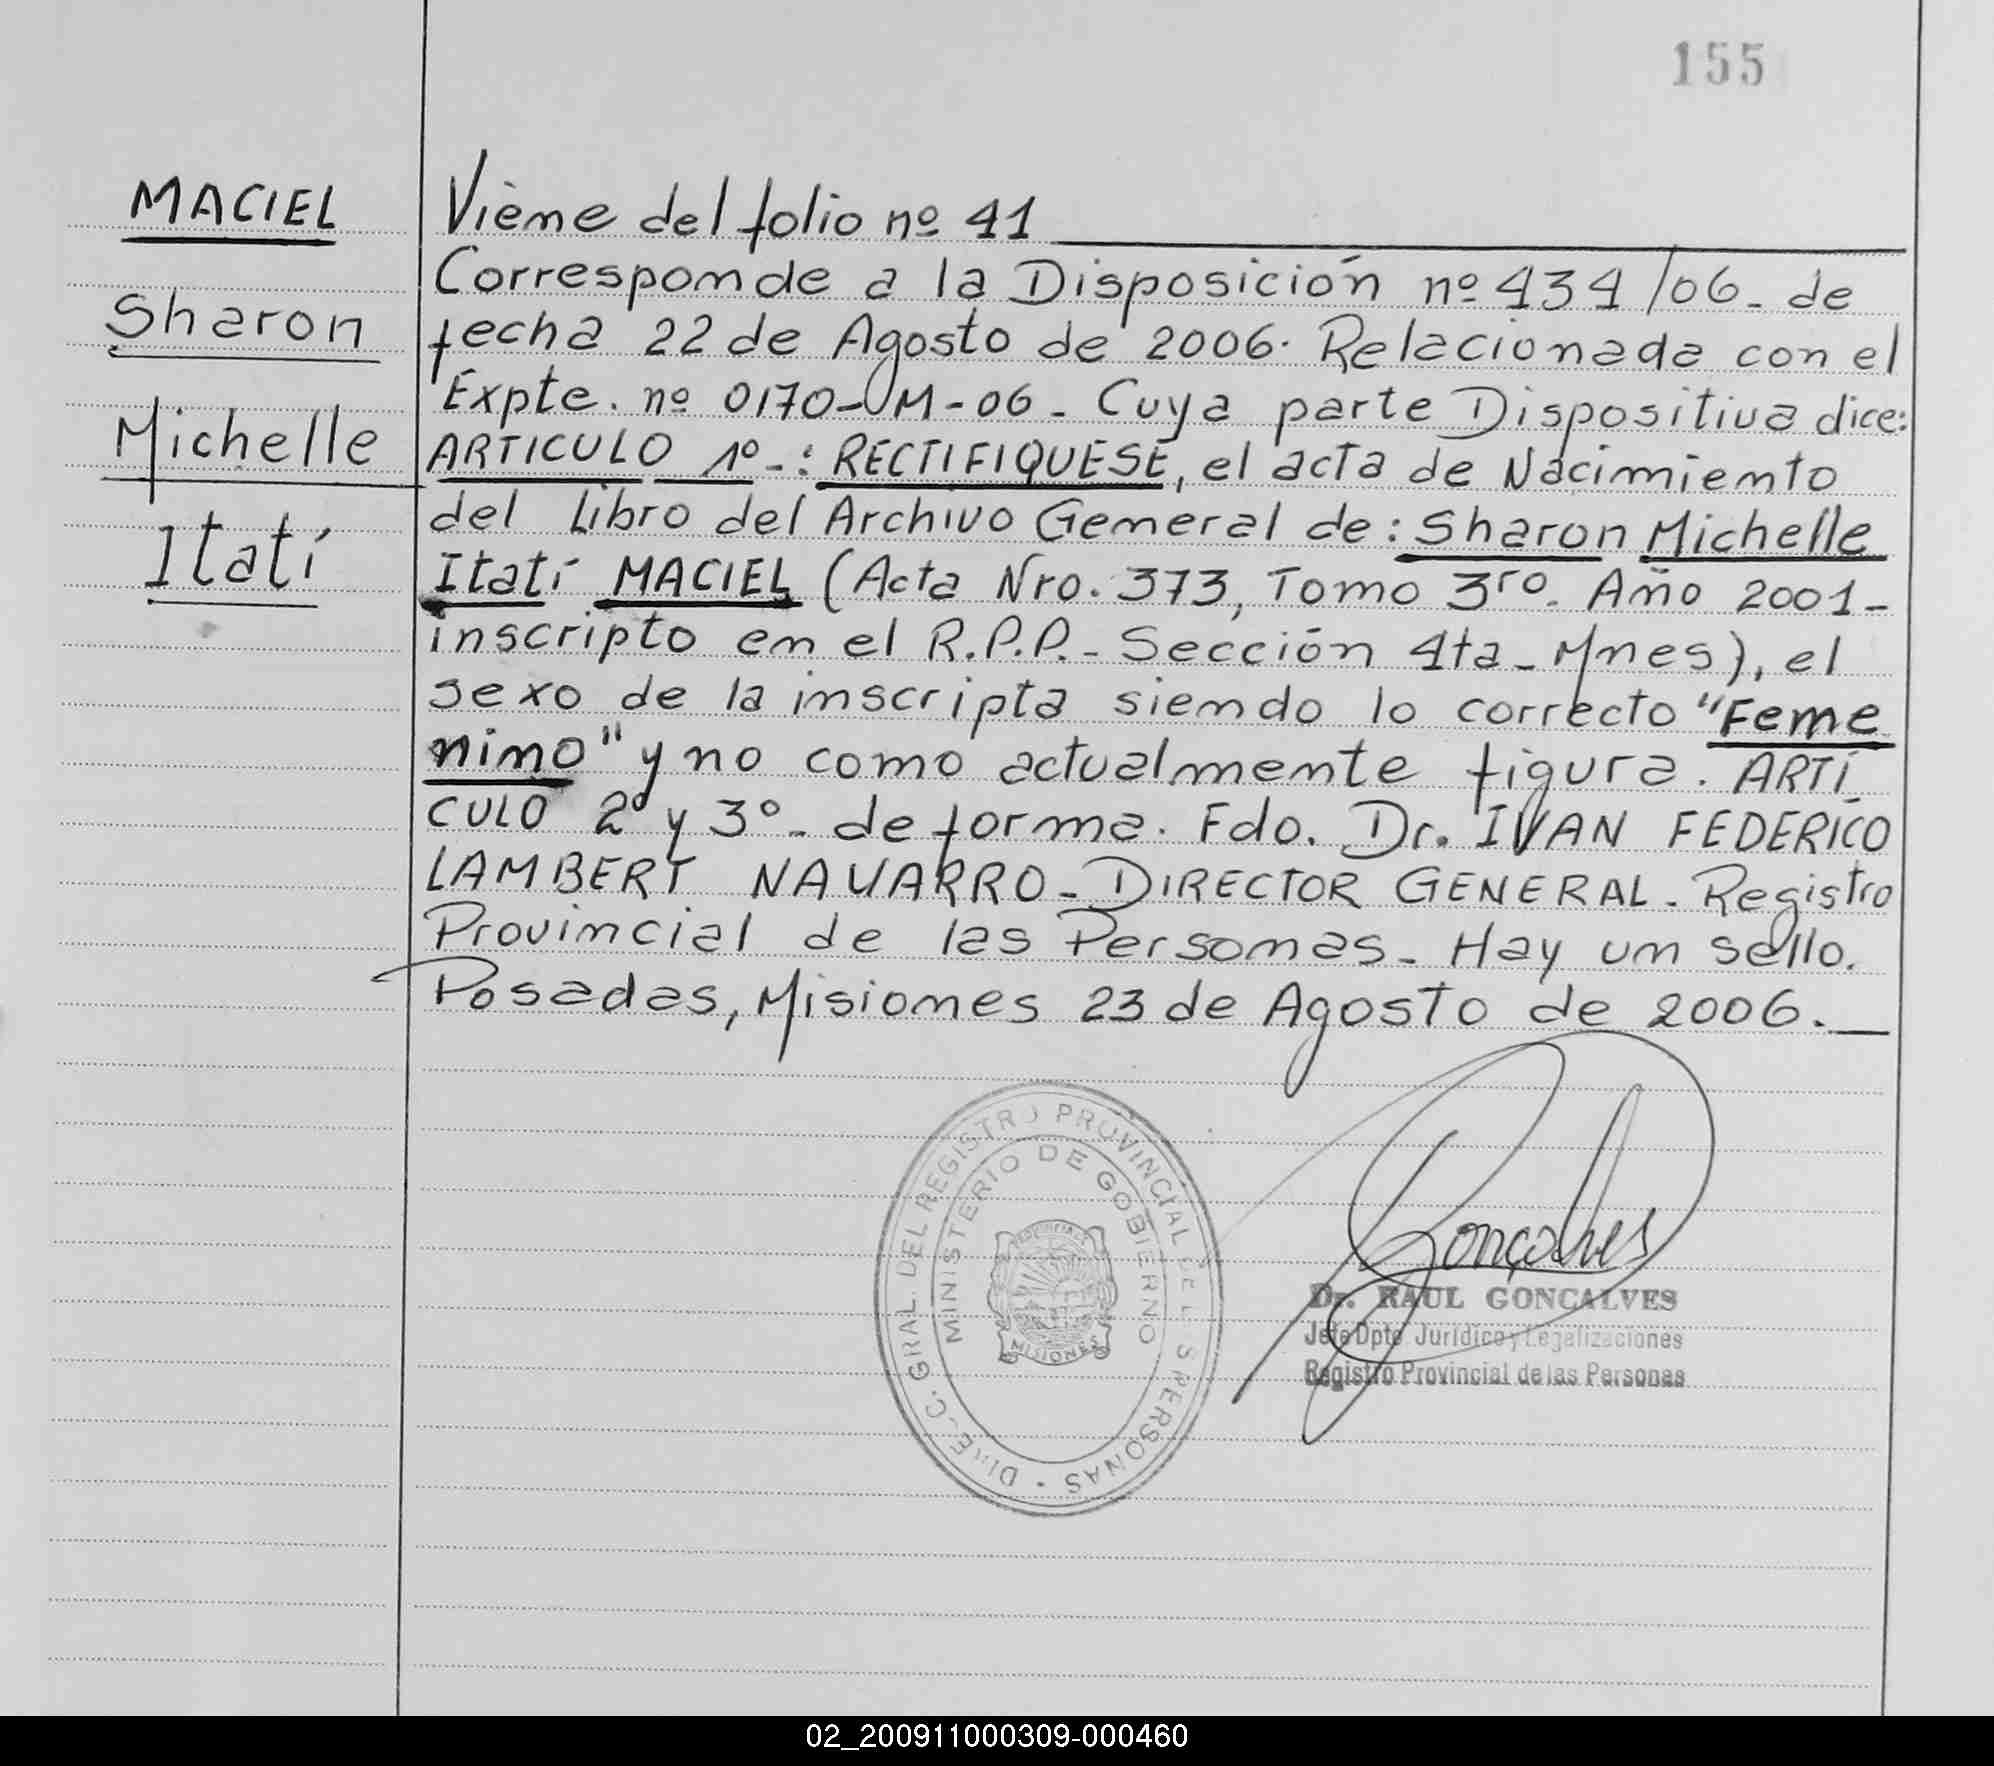 155
MACIEL
Sharon
Michelle
Itatí
Viene del folio nº 41
Corresponde a la Disposición nº 434/06- de
fecha 22 de Agosto de 2006. Relacionada con el
Expte. nº 0170-M-06- Cuya parte Dispositiva dice:
ARTICULO 1º-: RECTIFIQUESE, el acta de Nacimiento
del Libro del Archivo General de: Sharon Michelle
Itatí MACIEL (Acta Nro. 373, Tomo 3ro. Año 2001-
inscripto en el R.P.P.- Sección 4ta- Mnes), el
sexo de la inscripta siendo lo correcto "Feme
nino" y no como actualmente figura. ARTÍ
CULO 2º y 3º- de forma. Fdo. Dr. IVAN FEDERICO
LAMBERT NAVARRO- DIRECTOR GENERAL- Registro
Provincial de las Personas- Hay un sello.
Posadas, Misiones 23 de Agosto de 2006.
GRAL. DEL REGISTRO PROVINCIAL DE PERSONAS
MINISTERIO DE GOBIERNO
PROVINCIA DE
MISIONES
Gonçalves
Dr. RAUL GONCALVES
Jefe Dpto. Jurídico y Legalizaciones
Registro Provincial de las Personas
02_200911000309-000460